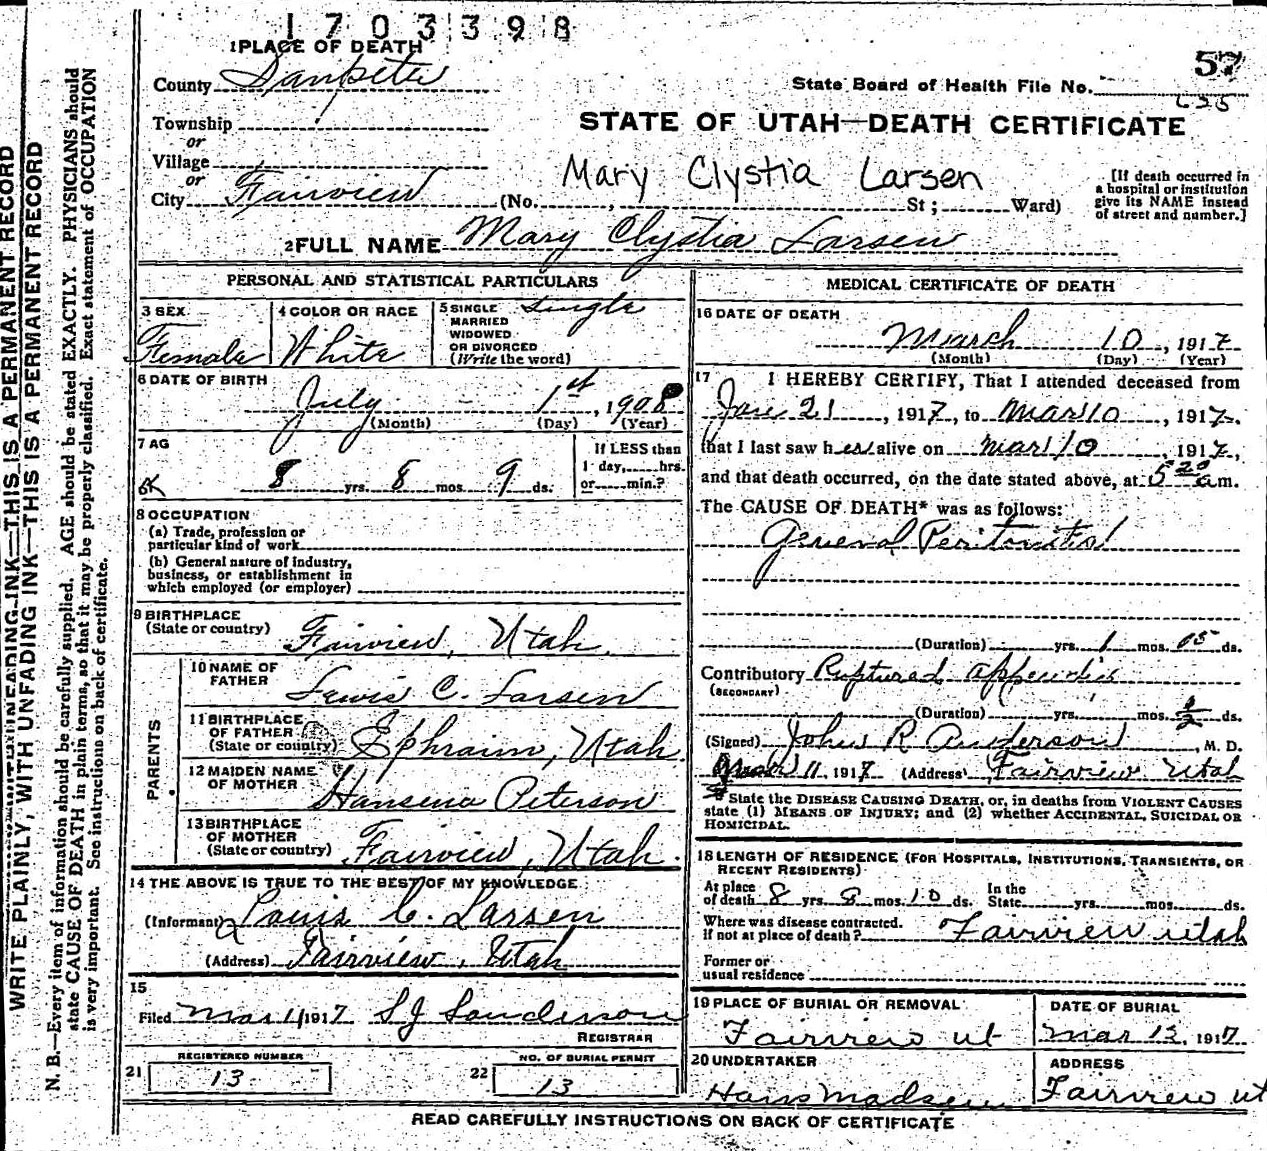 1703398
1 PLACE OF DEATH
County Sanpete
State Board of Health File No. 57
Township
or
STATE OF UTAH—DEATH CERTIFICATE
Village
or
Mary Clystia Larsen
City Fairview (No. , St ; Ward)
[If death occurred in
a hospital or institution
give its NAME instead
of street and number.]
2 FULL NAME Mary Clystia Larsen
PERSONAL AND STATISTICAL PARTICULARS
3 SEX Female
4 COLOR OR RACE White
5 SINGLE
MARRIED
WIDOWED
OR DIVORCED
(Write the word) Single
6 DATE OF BIRTH
July 1st, 1908
(Month) (Day) (Year)
7 AG
8 yrs. 8 mos. 9 ds.
If LESS than
1 day, hrs.
or min.?
8 OCCUPATION
(a) Trade, profession or
particular kind of work
(b) General nature of industry,
business, or establishment in
which employed (or employer)
9 BIRTHPLACE
(State or country) Fairview, Utah.
PARENTS
10 NAME OF
FATHER Lewis C. Larsen
11 BIRTHPLACE
OF FATHER
(State or country) Ephraim, Utah
12 MAIDEN NAME
OF MOTHER Hansena Peterson
13 BIRTHPLACE
OF MOTHER
(State or country) Fairview, Utah.
14 THE ABOVE IS TRUE TO THE BEST OF MY KNOWLEDGE
(Informant) Louis C. Larsen
(Address) Fairview, Utah
15
Filed Mar 11 1917 S J Sanderson
REGISTRAR
REGISTERED NUMBER
21 13
NO. OF BURIAL PERMIT
22 13
MEDICAL CERTIFICATE OF DEATH
16 DATE OF DEATH
March 10, 1917
(Month) (Day) (Year)
17 I HEREBY CERTIFY, That I attended deceased from
Jan 21, 1917, to Mar 10, 1917.
that I last saw her alive on Mar 10, 1917,
and that death occurred, on the date stated above, at 5 20 a m.
The CAUSE OF DEATH* was as follows:
General Peritonitis
(Duration) yrs. 1 mos. 05 ds.
Contributory Ruptured appendix
(SECONDARY)
(Duration) yrs. mos. ds.
(Signed) John R Anderson, M. D.
March 11, 1917 (Address) Fairview Utah
* State the DISEASE CAUSING DEATH, or, in deaths from VIOLENT CAUSES
state (1) MEANS OF INJURY; and (2) whether ACCIDENTAL, SUICIDAL OR
HOMICIDAL.
18 LENGTH OF RESIDENCE (FOR HOSPITALS, INSTITUTIONS, TRANSIENTS, OR
RECENT RESIDENTS)
At place
of death 8 yrs. 8 mos. 10 ds. In the
State yrs. mos. ds.
Where was disease contracted.
If not at place of death? Fairview Utah
Former or
usual residence
19 PLACE OF BURIAL OR REMOVAL
Fairview ut
DATE OF BURIAL
Mar 13, 1917
20 UNDERTAKER
Hans Madsen
ADDRESS
Fairview ut
READ CAREFULLY INSTRUCTIONS ON BACK OF CERTIFICATE
WRITE PLAINLY, WITH UNFADING INK—THIS IS A PERMANENT RECORD
N. B.—Every item of information should be carefully supplied. AGE should be stated EXACTLY. PHYSICIANS should
state CAUSE OF DEATH in plain terms, so that it may be properly classified. Exact statement of OCCUPATION
is very important. See instructions on back of certificate.